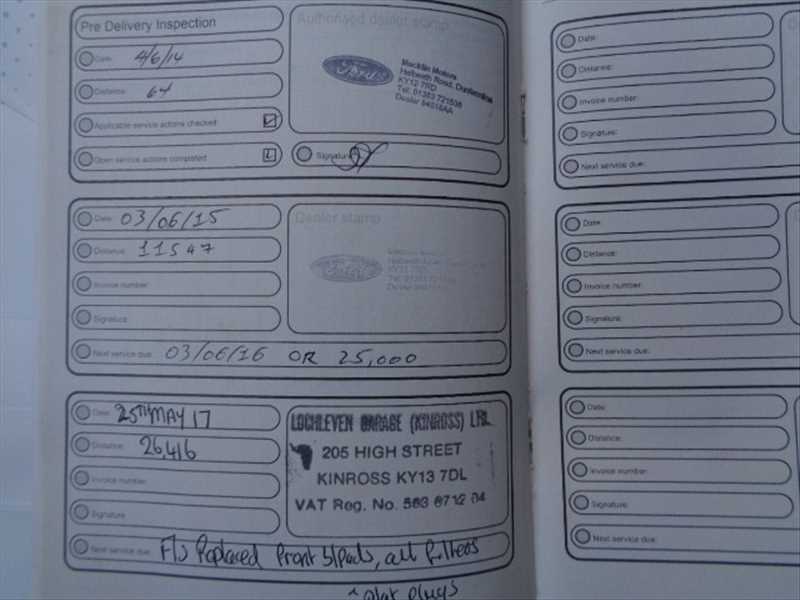 Pre Delivery Inspection
Authorised dealer stamp
Date: 4/6/14
Distance: 64
Ford
Macklin Motors
Halbeath Road, Dunfermline
KY12 7RD
Tel: 01383 721536
Dealer
Applicable service actions checked
Open service actions completed
Signature
Date: 03/06/15
Dealer stamp
Distance: 11547
Ford
Invoice number:
Signature:
Next service due: 03/06/16 OR 25,000
Date: 25TH MAY 17
LOCHLEVEN GARAGE (KINROSS) LTD.
Distance: 26,416
205 HIGH STREET
KINROSS KY13 7DL
Invoice number:
VAT Reg. No. 563 6712 04
Signature
Next service due: F/S Replaced Front b/pads, all filters
plugs
Date:
Distance:
Invoice number:
Signature:
Next service due:
Date:
Distance:
Invoice number:
Signature:
Next service due:
Date:
Distance:
Invoice number:
Signature:
Next service due: